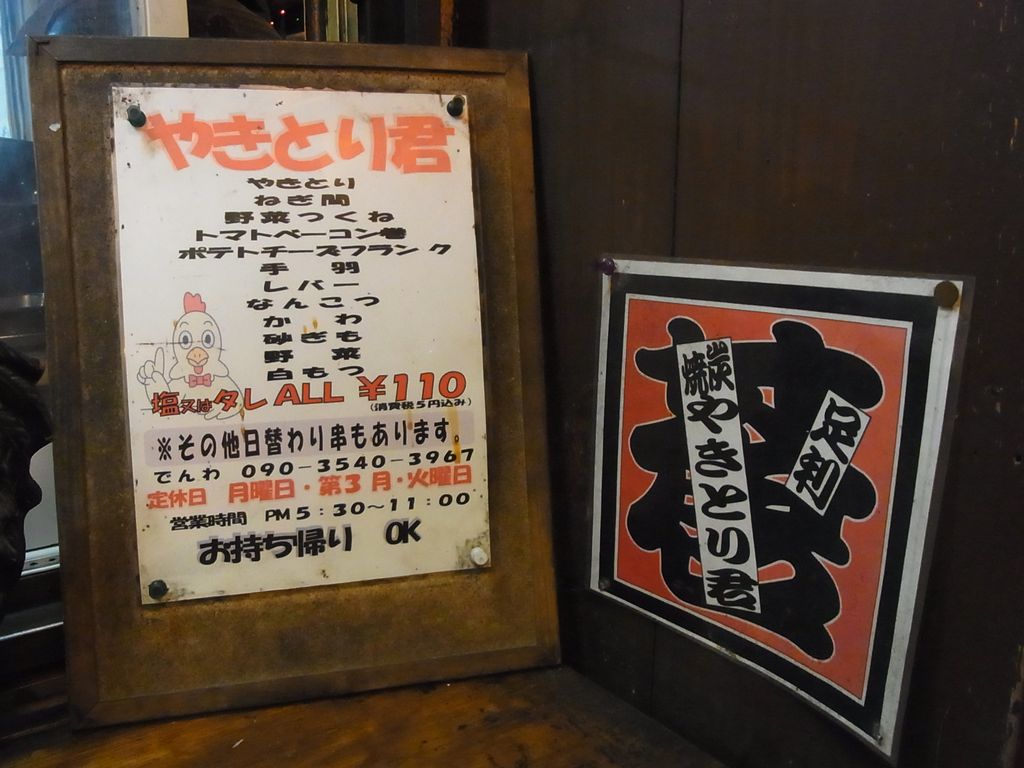 やきとり君
やきとり
ねぎ間
野菜つくね
トマトベーコン巻
ポテトチーズフランク
手羽
レバー
なんこつ
かわ
砂ぎも
野菜
白もつ
塩又はタレ ALL ¥110
(消費税5円込み)
※その他日替わり串もあります。
でんわ 090-3540-3967
定休日 月曜日・第3月・火曜日
営業時間 PM5:30~11:00
お持ち帰り OK
炭焼 やきとり君
足利